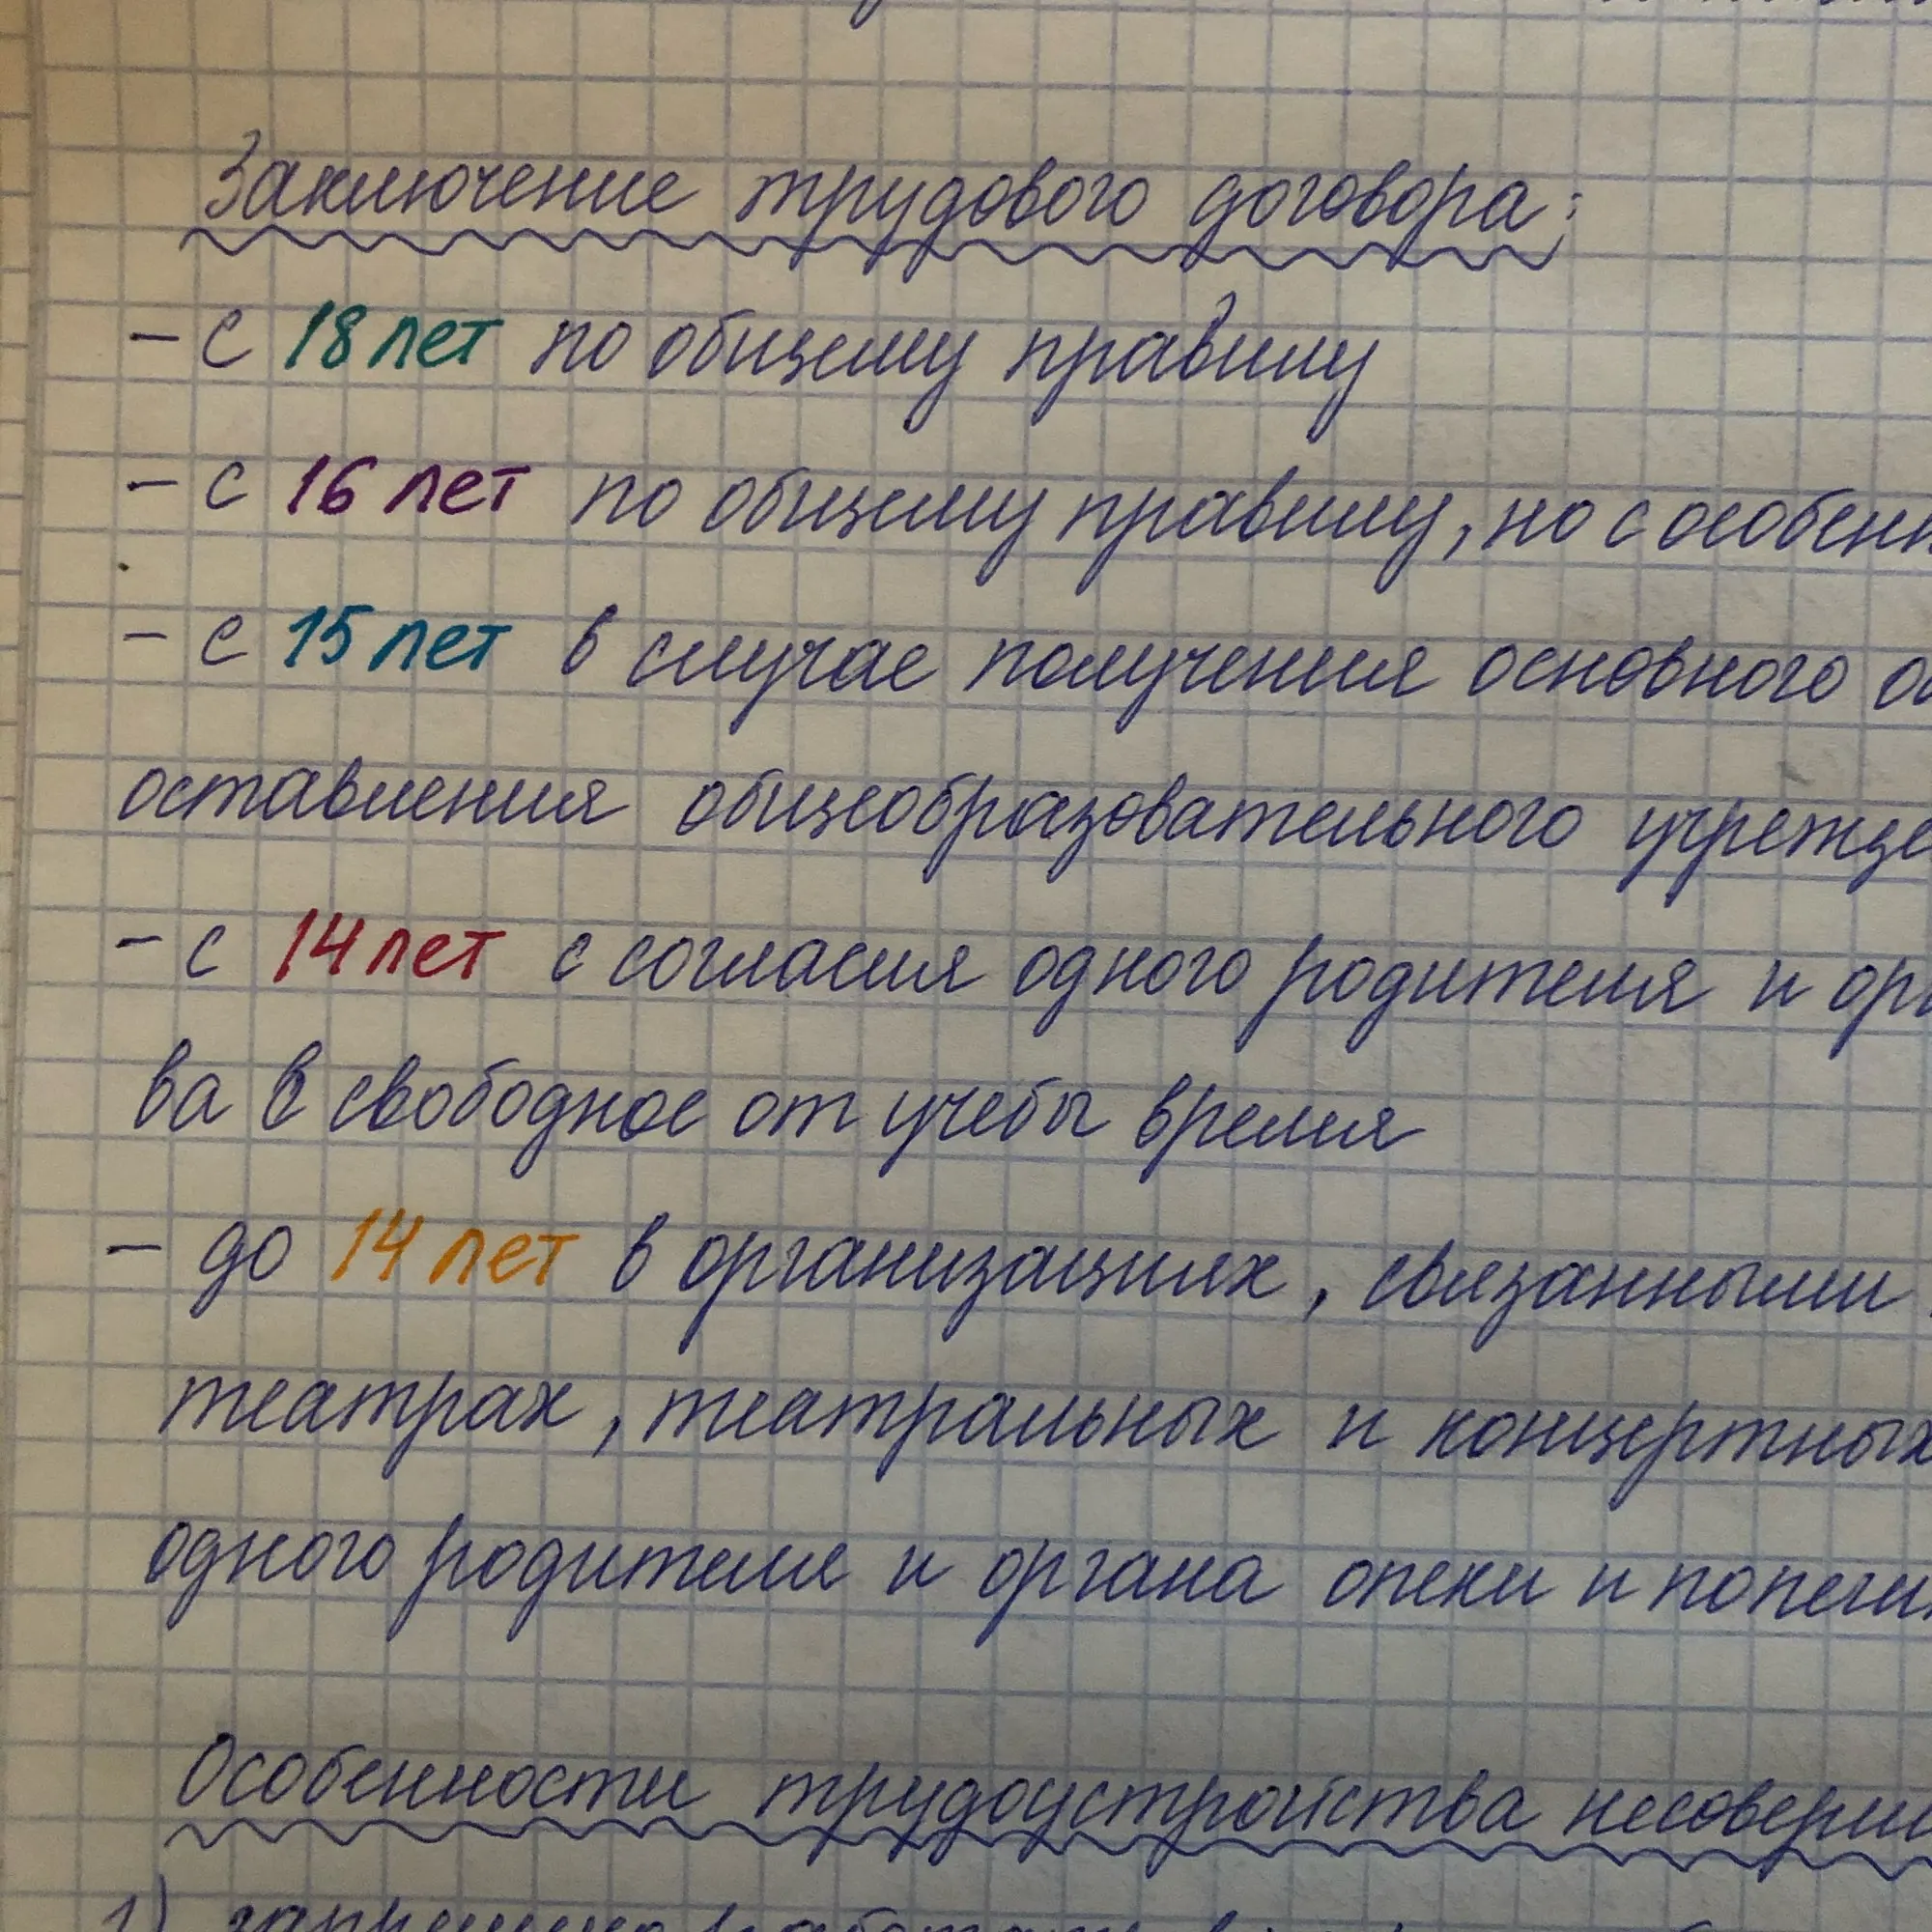 Заключение трудового договора:
– с 18 лет по общему правилу
– с 16 лет по общему правилу, но с особенн
– с 15 лет в случае получения основного об
оставления общеобразовательного учрежде
– с 14 лет с согласия одного родителя и орг
ва в свободное от учебы время
– до 14 лет в организациях, связанными
театрах, театральных и концертных
одного родителя и органа опеки и попечи
Особенности трудоустройства несоверш
1)